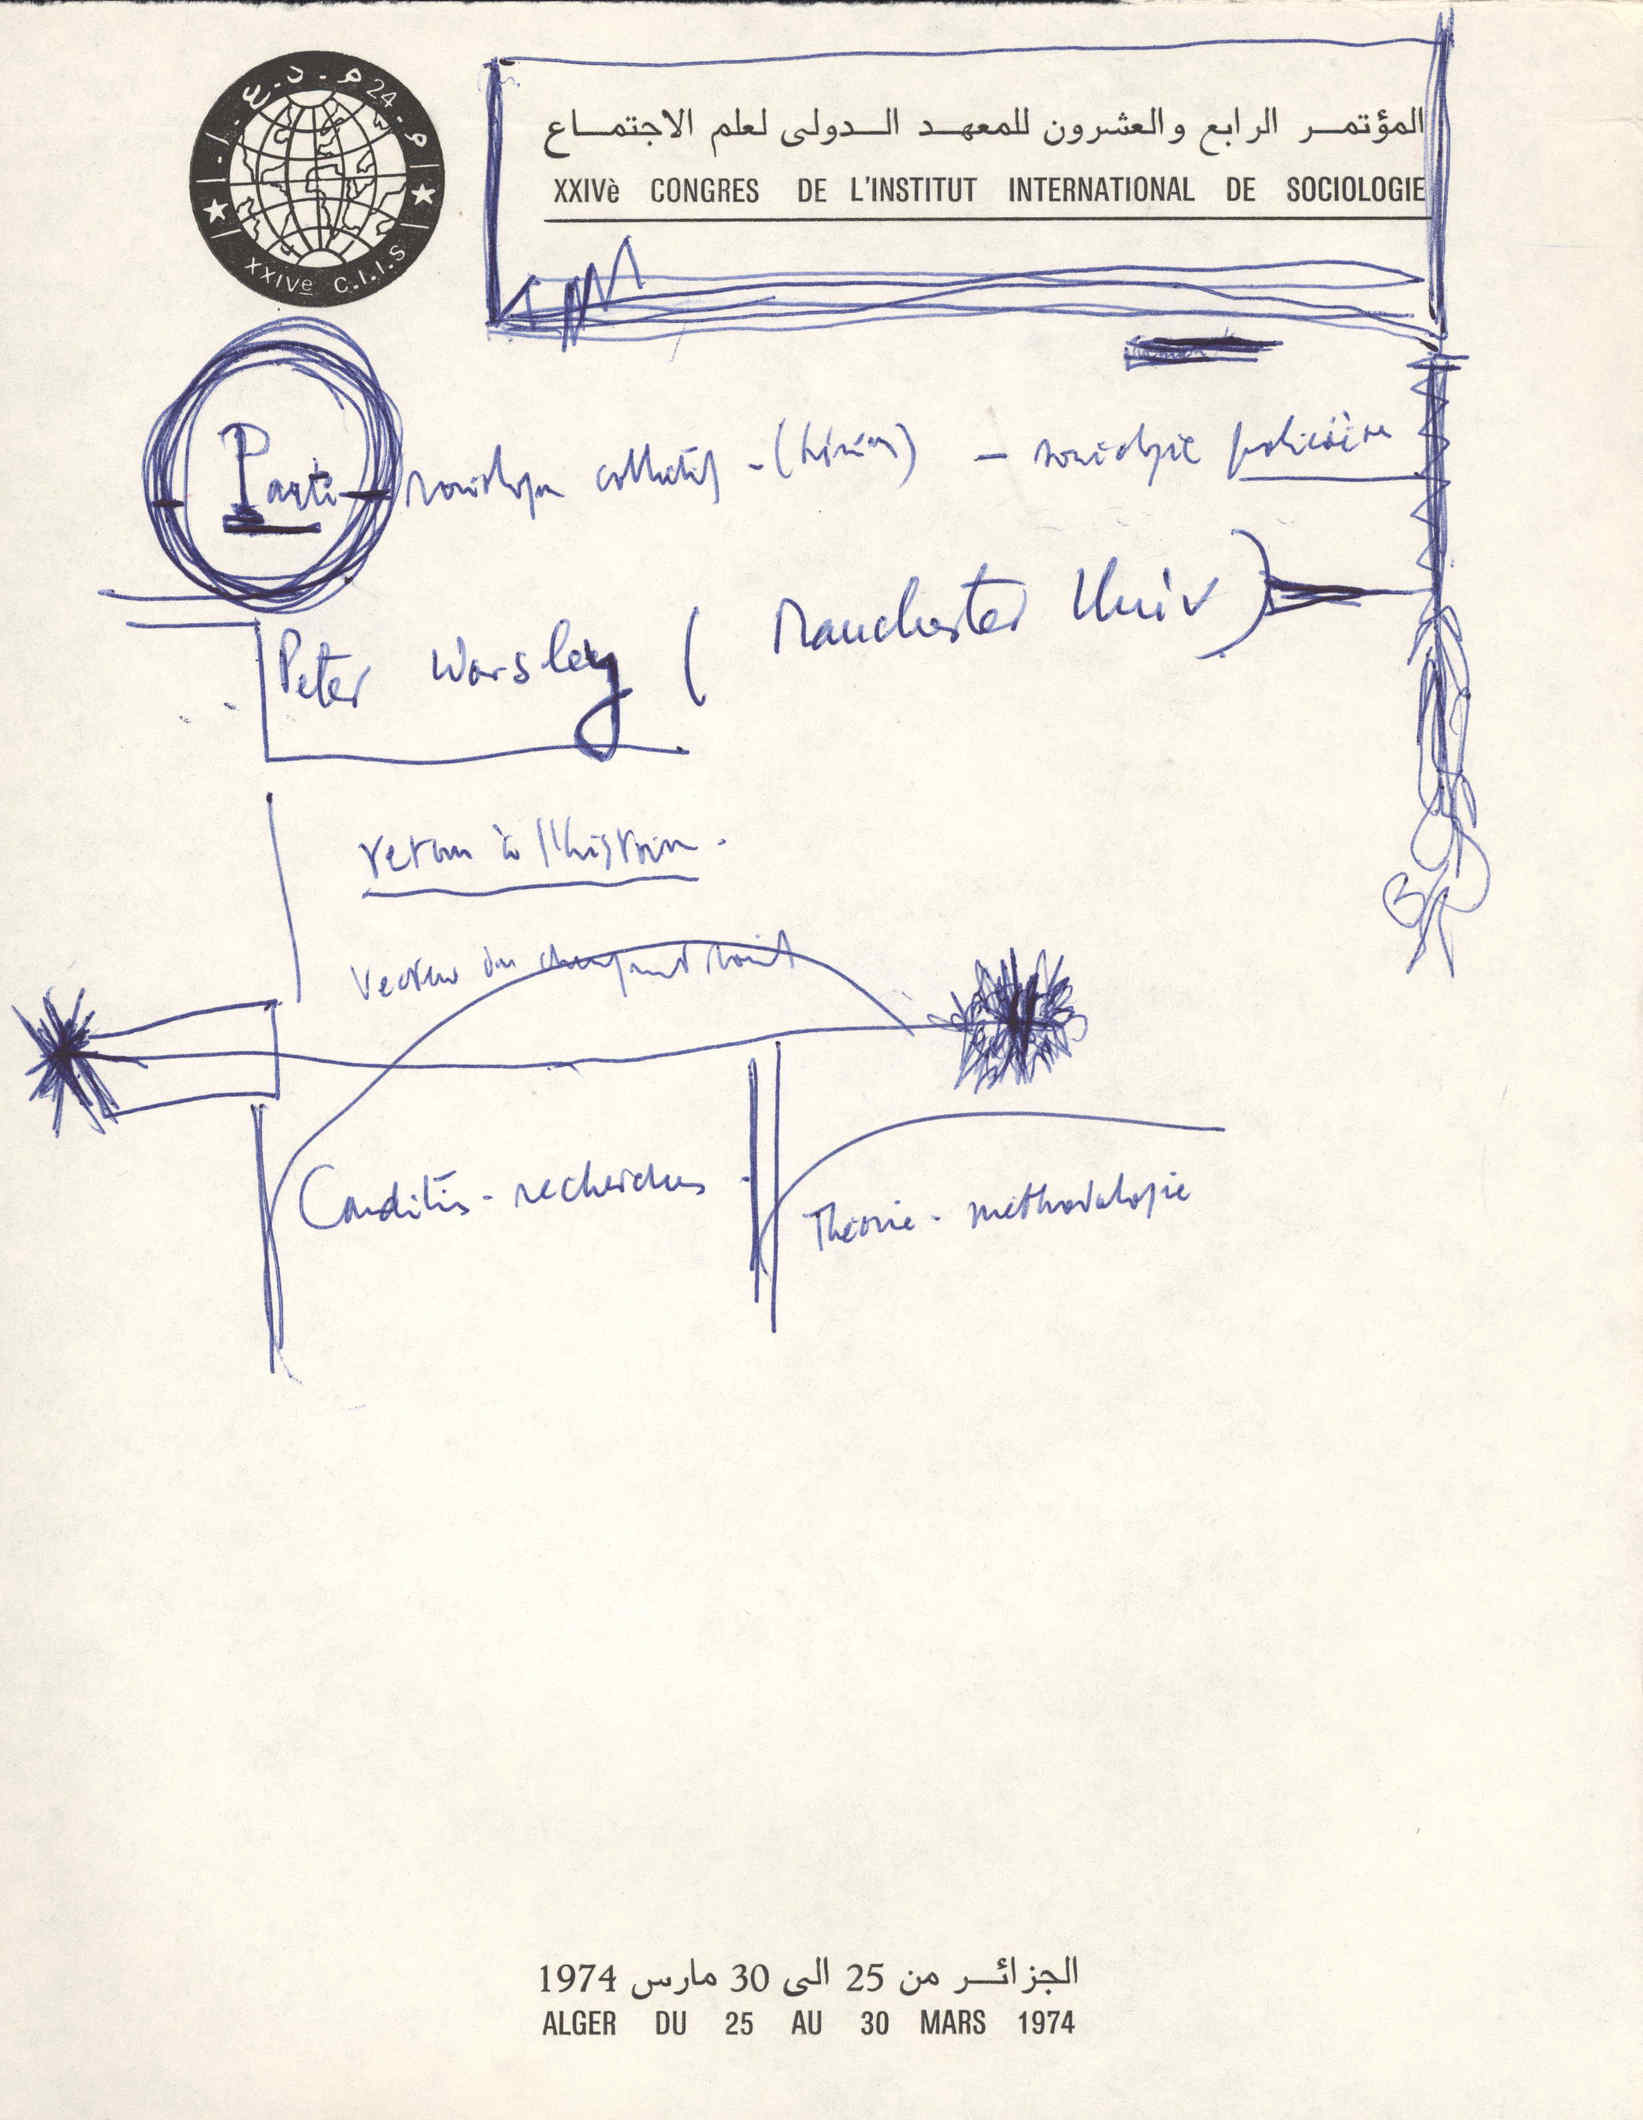 م . 24 م . د . ع . ا .
XXIVe C.I.I.S
المؤتمر الرابع والعشرون للمعهد الدولى لعلم الاجتماع
XXIVè CONGRES DE L'INSTITUT INTERNATIONAL DE SOCIOLOGIE
Parti - collectif - sociologie policière
Peter Worsley ( Manchester Univ )
retour à l'histoire .
Conditis - recherches - Théorie - méthodologie
الجزائر من 25 الى 30 مارس 1974
ALGER DU 25 AU 30 MARS 1974